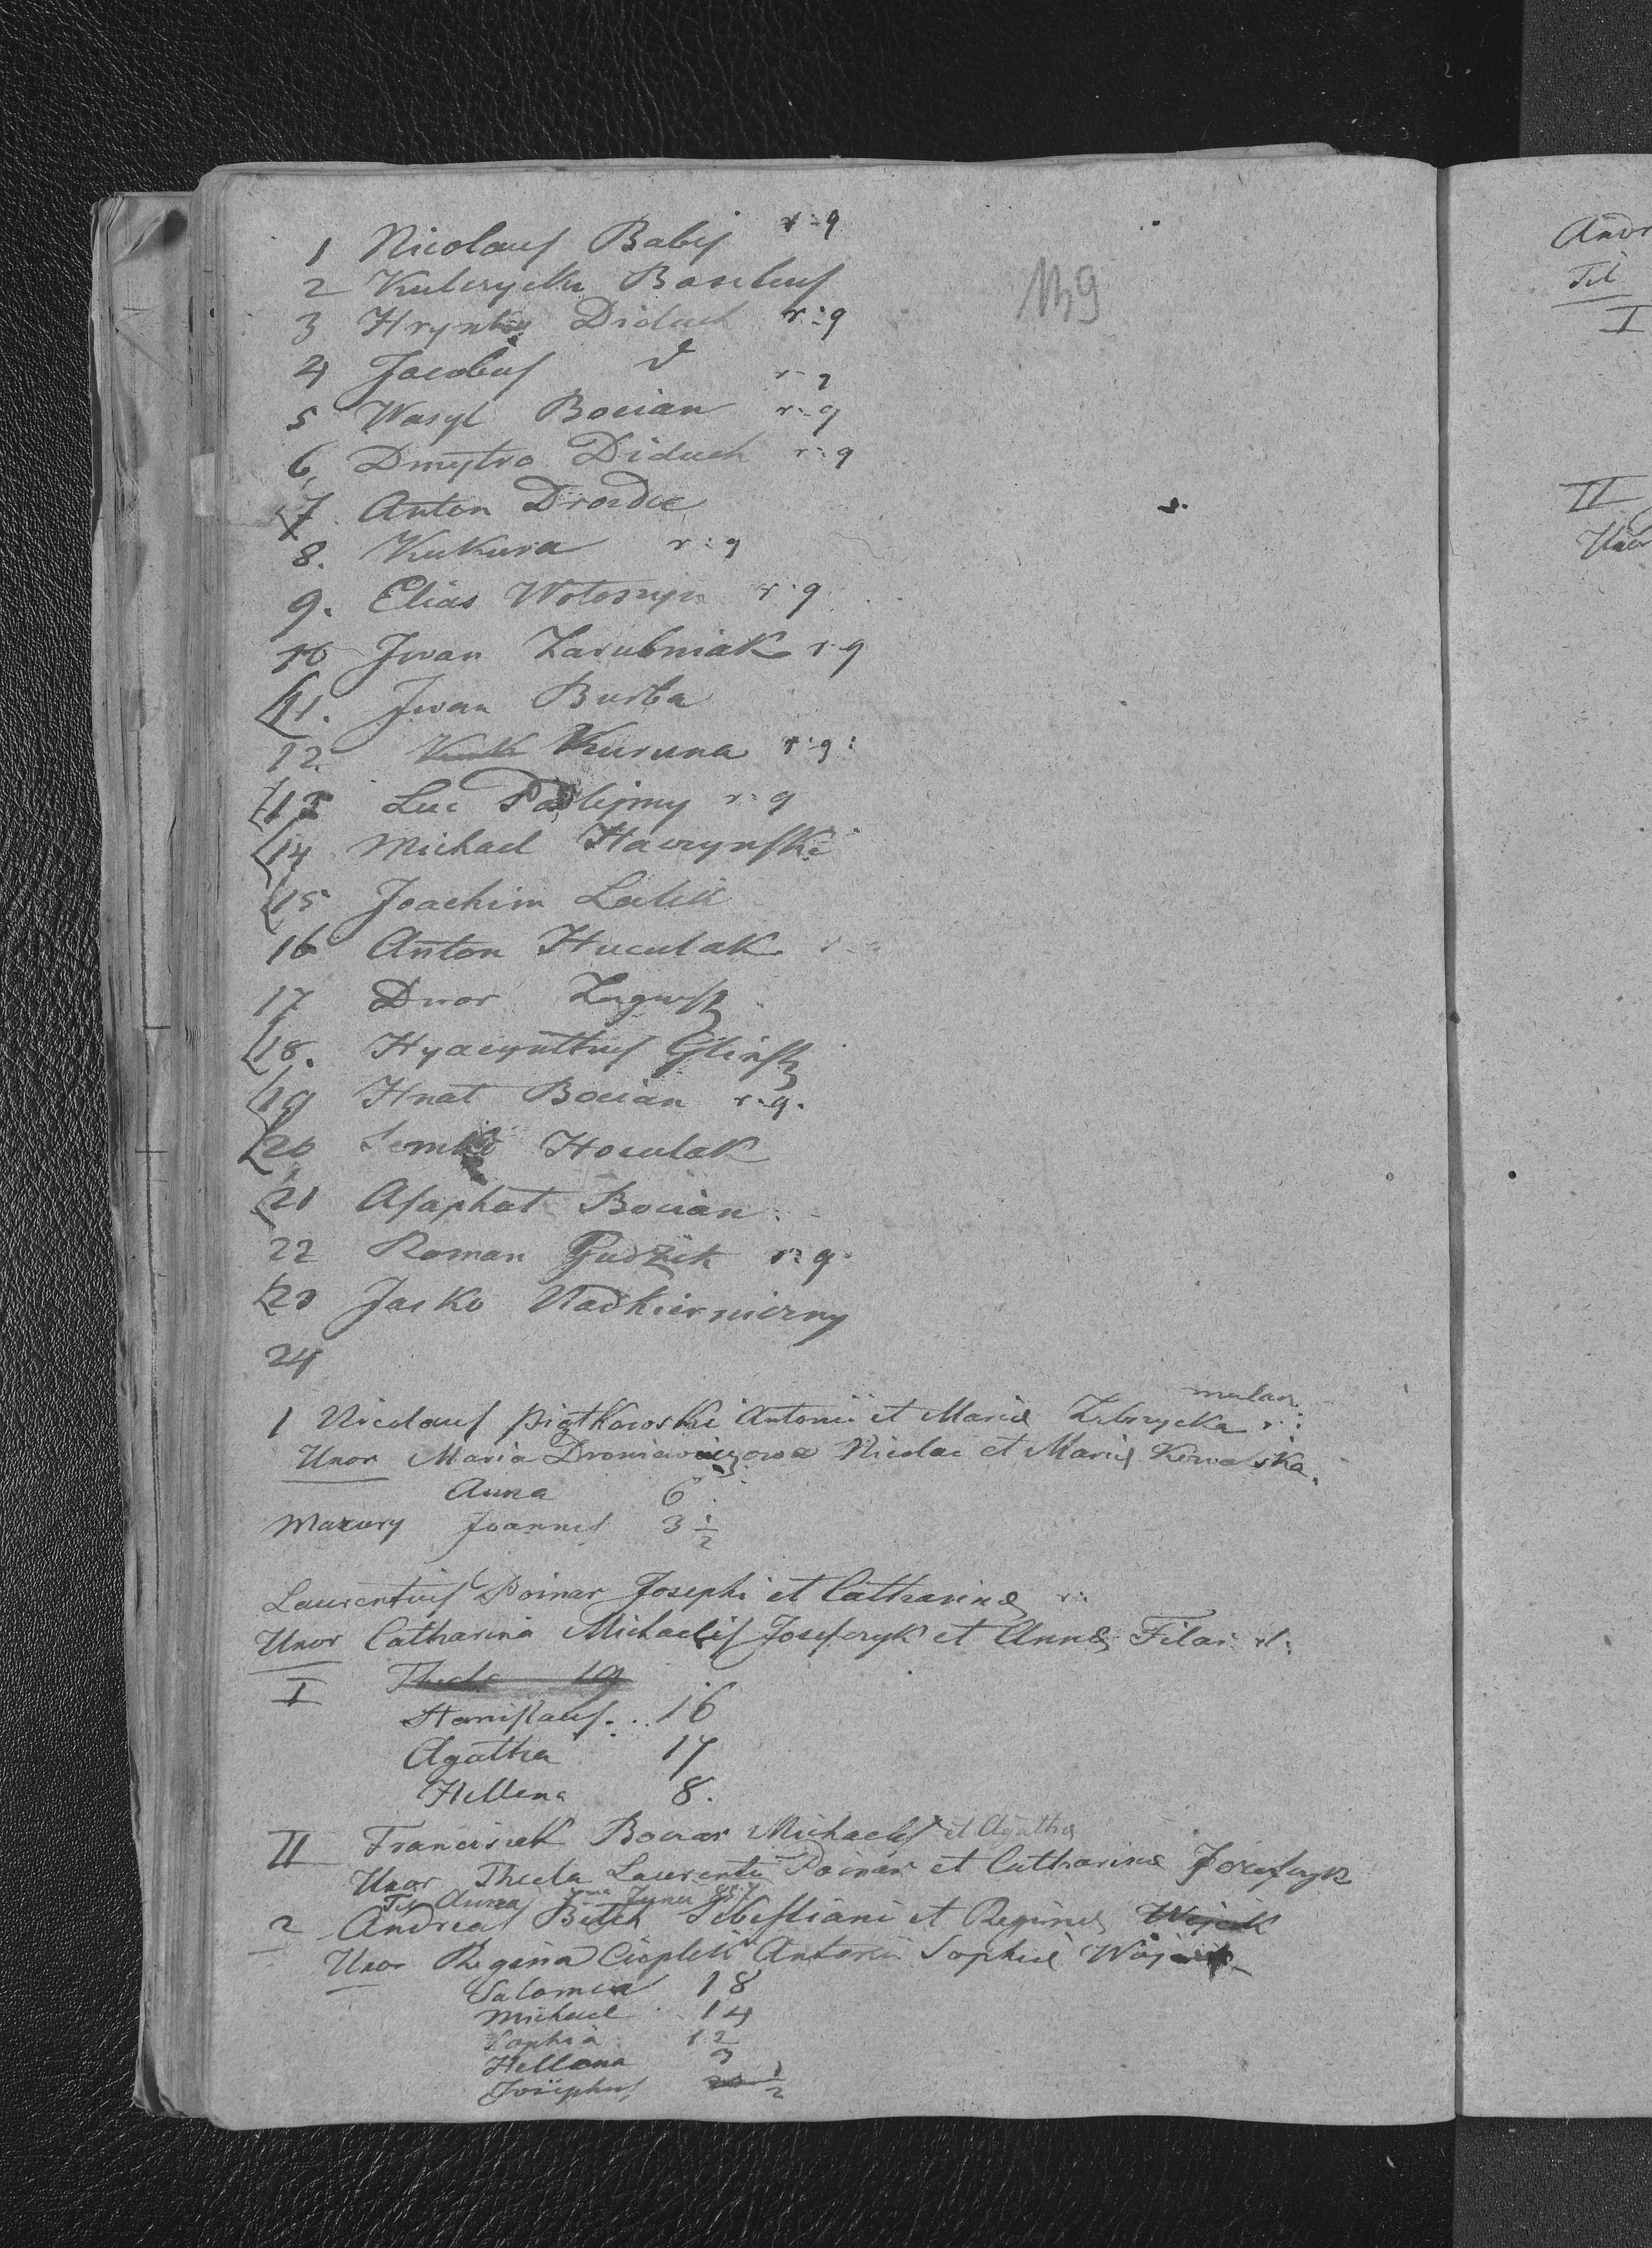 1 Nicolaus Babij r:g
2 Kulczycki Basilius
3 Hrynko Diduch r:g
139
4 Jacobus d r:g
5 Wasyl Bocian r:g
6 Dmytro Diduch r:g
7 Anton Drozda
8. Kukura r:g
9. Elias Wołoszyn r:g
10 Jwan Zarubniak r:g
11. Jwan Burba
12. Kuruna r:g:
13 Luc Podlejmy r:g
14 Michael Hawrynski
15 Joachim Lalik
16 Anton Huculak
17 Dwor
18. Hyacynthus Glinski
19 Hnat Bocian r.g.
20 Semko Hoculak
21 Asaphat Bocian
22 Roman Gudzik r:g
23 Jacko Nadkierniczny
24
mular
1 Nicolaus Piątkowski Antonii et Mariæ Zebrzycka r:
Uxor Maria Droniewiczowa Nicolai et Mariæ Kowalska.
Anna 6
Mazury Joannes 3 1/2
Laurentius Poinar Josephi et Catharinæ r:
Uxor Catharina Michaelis Josefczyk et Annæ Filar rl:
I Thecla 19
Stanislaus... 16
Agatha 17
Hellena 8.
II Franciszek Bocrar Michaelis et Agatha
Uxor Thecla Laurentii Poinar et Catharinæ Jozefczyk
Fil Anna
2 Andreas Bełch Sebestiani et Reginæ Wojcik
Uxor Regina Cioplik Antonii Sophiæ Wojcik
Salomea 18
Michael 14
Sophia 12
Hellena 9
Josephus 1/2
Andr
Fil
I
II
Uxor